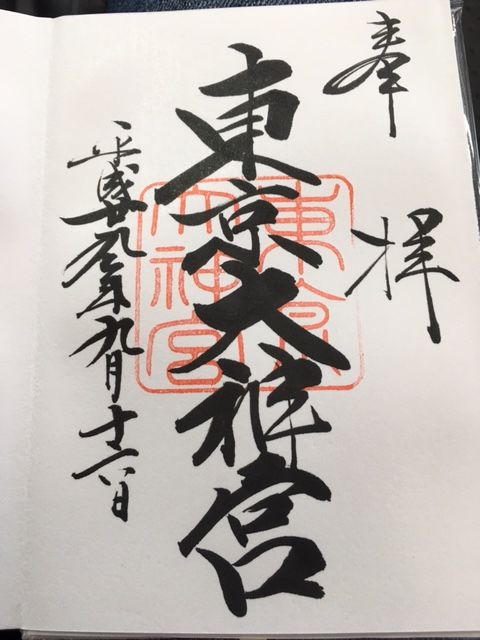 奉拝
東京大神宮
平成廿九年九月十六日
東京
大神宮